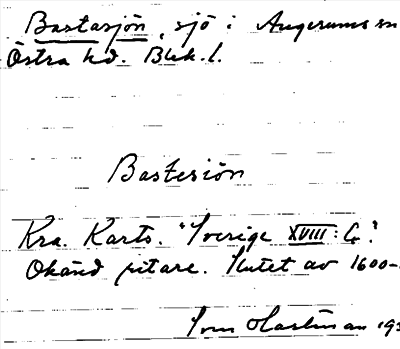 Bastasjön, sjö i Augerums sn
Östra hd. Blek. l.
Bastesiön
Kra. Karts. "Sverige XVIII: G"
Okänd ritare. Slutet av 1600-
Hartman 193